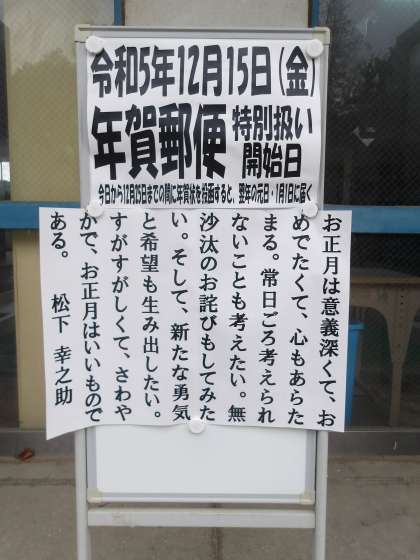 令和5年12月15日(金)
年賀郵便
特別扱い
開始日
今日から12月25日までの間に年賀状を投函すると、翌年の元日・1月1日に届く
お正月は意義深くて、お
めでたくて、心もあらた
まる。常日ごろ考えられ
ないことも考えたい。無
沙汰のお詫びもしてみた
い。そして、新たな勇気
と希望も生み出したい。
すがすがしくて、さわや
かで、お正月はいいもので
ある。 松下 幸之助